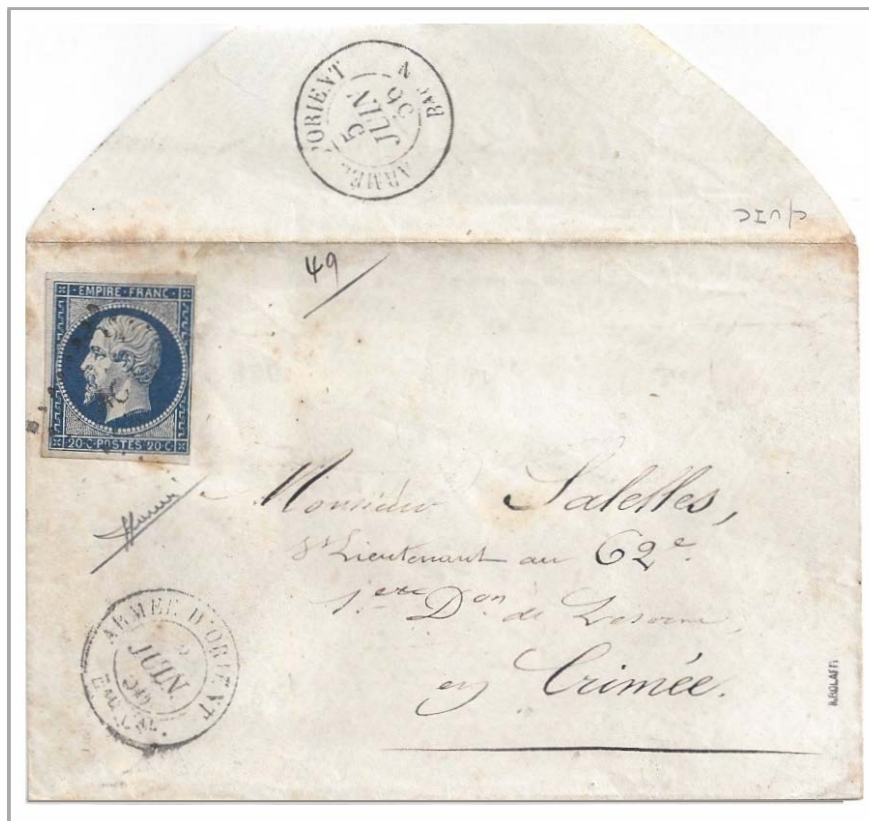 ARMÉE D'ORIENT
5
JUIN
56
Bau N
49
EMPIRE · FRANC ·
20·C·POSTES 20·C
Monsieur Salelles,
S^s Lieutenant au 62^e
1.^ère D^on de
en Crimée.
ARMÉE D'ORIENT
JUIN
56